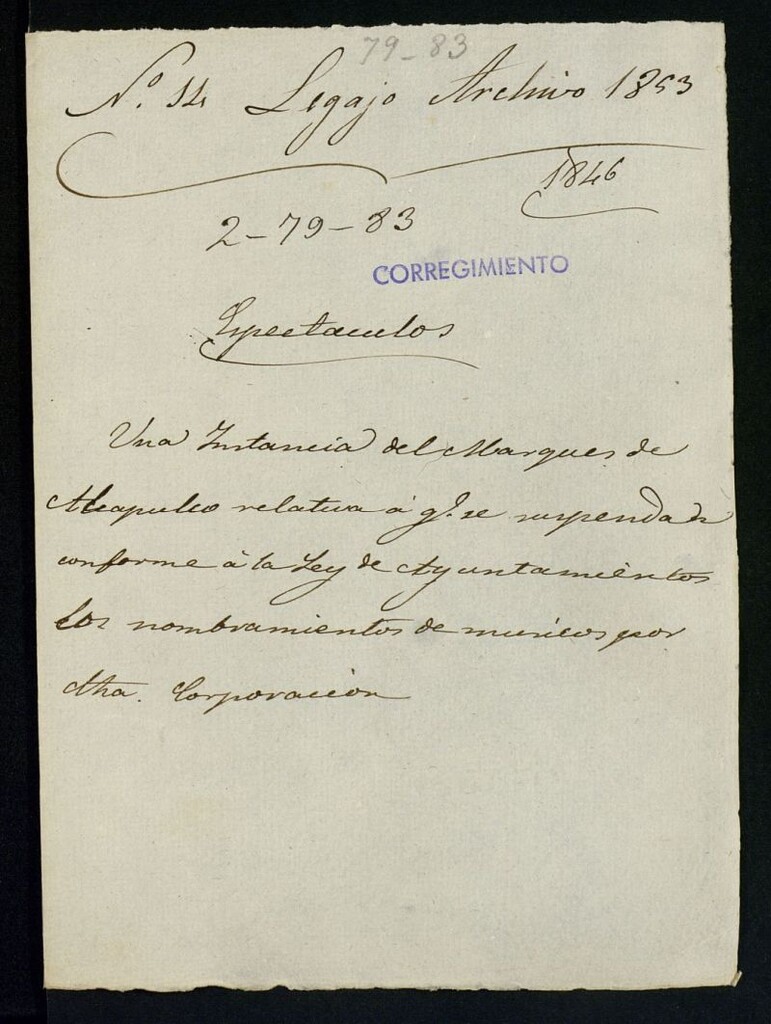 79-83
Nº. 14 Legajo Archivo 1853
1846
2-79-83
CORREGIMIENTO
Espectaculos
Una Instancia del Marques de
Acapulco relativa á qe. se suspendan
conforme á la Ley de Ayuntamientos
los nombramientos de musicos por
dha. Corporacion